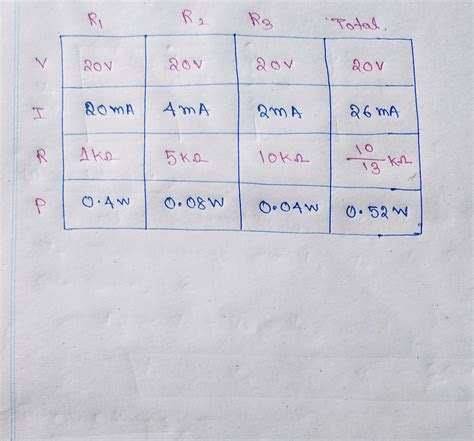 R1 R2 R3 Total.
V 20V 20V 20V 20V
I 20mA 4mA 2mA 26mA
R 1KΩ 5KΩ 10KΩ 10/13 KΩ
P 0.4W 0.08W 0.04W 0.52W